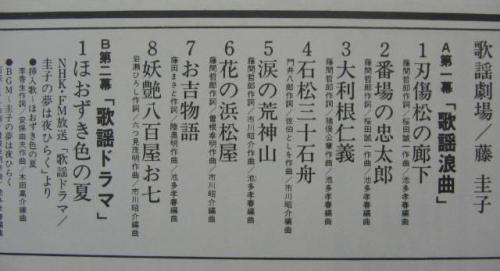 歌謡劇場/藤 圭子
A 第一幕「歌謡浪曲」
1 刃傷松の廊下
藤間哲郎作詞/桜田誠一作曲/池多孝春編曲
2 番場の忠太郎
藤間哲郎作詞/桜田誠一作曲/池多孝春編曲
3 大利根仁義
藤間哲郎作詞/猪俣公章作曲/池多孝春編曲
4 石松三十石舟
門井八郎作詞/佐伯としを作曲/池多孝春編曲
5 涙の荒神山
藤間哲郎作詞/市川昭介作曲/池多孝春編曲
6 花の浜松屋
藤間哲郎作詞/曽根幸明作曲/市川昭介編曲
7 お吉物語
藤田まさと作詞/陸奥明作曲/池多孝春編曲
8 妖艶八百屋お七
岩瀬ひろし作詞/六つ見茂明作曲/市川昭介編曲
B 第二幕「歌謡ドラマ」
1 ほおずき色の夏
NHK・FM放送「歌謡ドラマ/
圭子の夢は夜ひらく」より
●挿入歌〜ほおずき色の夏
李春香作詞/安保由夫作曲/木田高介編曲
●BGM〜圭子の夢は夜ひらく